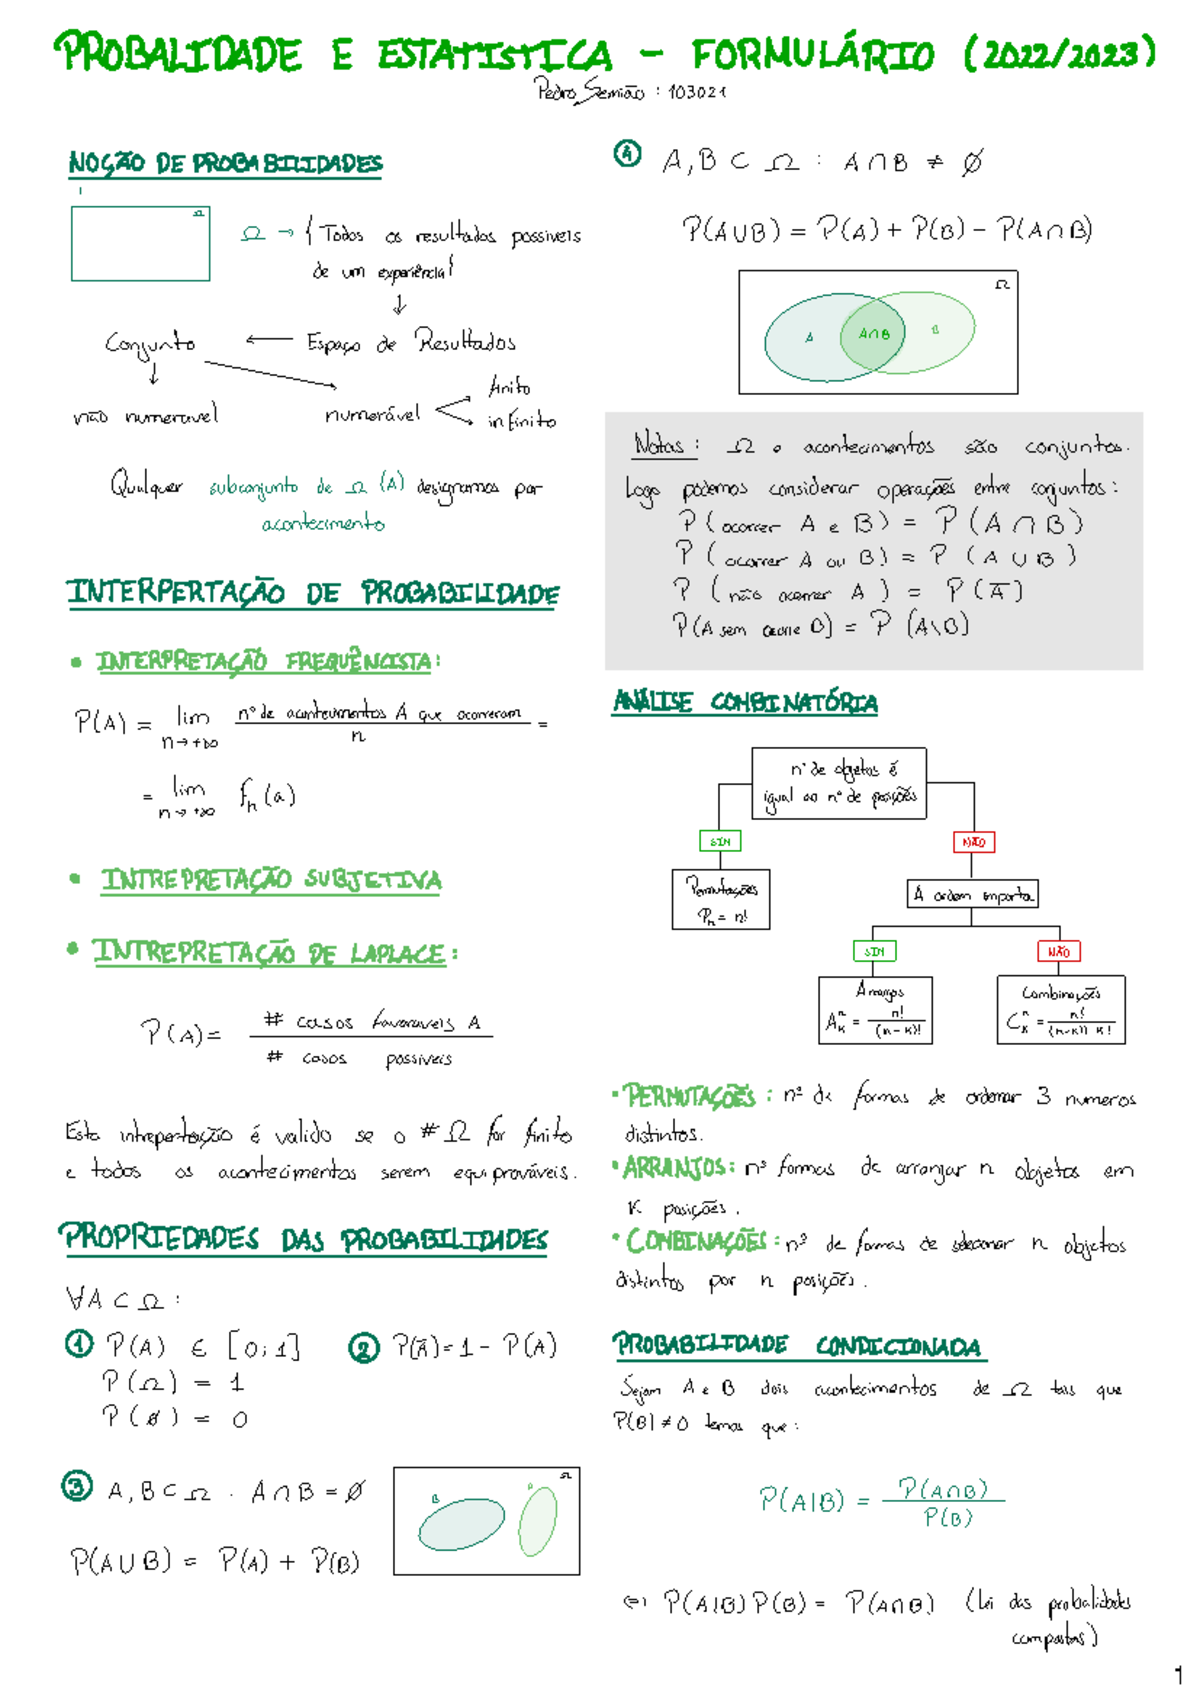 PROBALIDADE E ESTATISTICA - FORMULÁRIO (2022/2023)
Pedro Semião : 103021
NOÇÃO DE PROBABILIDADES
Ω
Ω → { Todos os resultados possiveis
de um experiência}
↓
Conjunto ← Espaço de Resultados
↓
não numeravel
numerável
finito
infinito
Qualquer subconjunto de Ω (A) designamos por
acontecimento
INTERPERTAÇÃO DE PROBABILIDADE
• INTERPRETAÇÃO FREQUÊNCISTA:
P(A) = lim n→+∞ nº de acontecimentos A que ocorreram / n =
= lim n→+∞ fn(a)
• INTREPRETAÇÃO SUBJETIVA
• INTREPRETAÇÃO DE LAPLACE:
P(A) = # casos favoraveis A / # casos possiveis
Esta intrepertação é valido se o #Ω for finito
e todos os acontecimentos serem equiprováveis.
PROPRIEDADES DAS PROBABILIDADES
∀A ⊂ Ω :
① P(A) ∈ [0;1]
P(Ω) = 1
P(∅) = 0
② P(Ā) = 1 - P(A)
③ A, B ⊂ Ω . A ∩ B = ∅
P(A ∪ B) = P(A) + P(B)
Ω
B
④ A, B ⊂ Ω : A ∩ B ≠ ∅
P(A ∪ B) = P(A) + P(B) - P(A ∩ B)
Ω
A
A∩B
B
Notas : Ω e acontecimentos são conjuntos.
Logo podemos considerar operações entre conjuntos:
P ( ocorrer A e B) = P (A ∩ B)
P ( ocorrer A ou B) = P (A ∪ B)
P ( não ocorrer A ) = P (Ā)
P(A sem ocorre B) = P (A\B)
ANÁLISE COMBINATÓRIA
nº de objetos é
igual ao nº de posições
SIM
NÃO
Permutações
Pn = n!
A ordem importa
SIM
NÃO
Arranjos
A^n_k = n! / (n-k)!
Combinações
C^n_k = n! / (n-k)! k!
• PERMUTAÇÕES : nº de formas de ordenar 3 numeros
distintos.
• ARRANJOS : nº formas de arranjar n objetos em
k posições.
• COMBINAÇÕES : nº de formas de selecionar n objetos
distintos por n posições.
PROBABILIDADE CONDICIONADA
Sejam A e B dois acontecimentos de Ω tais que
P(B) ≠ 0 temos que :
P(A|B) = P(A∩B) / P(B)
⇔ P(A|B) P(B) = P(A∩B) (Lei das probalidades
compostas)
1